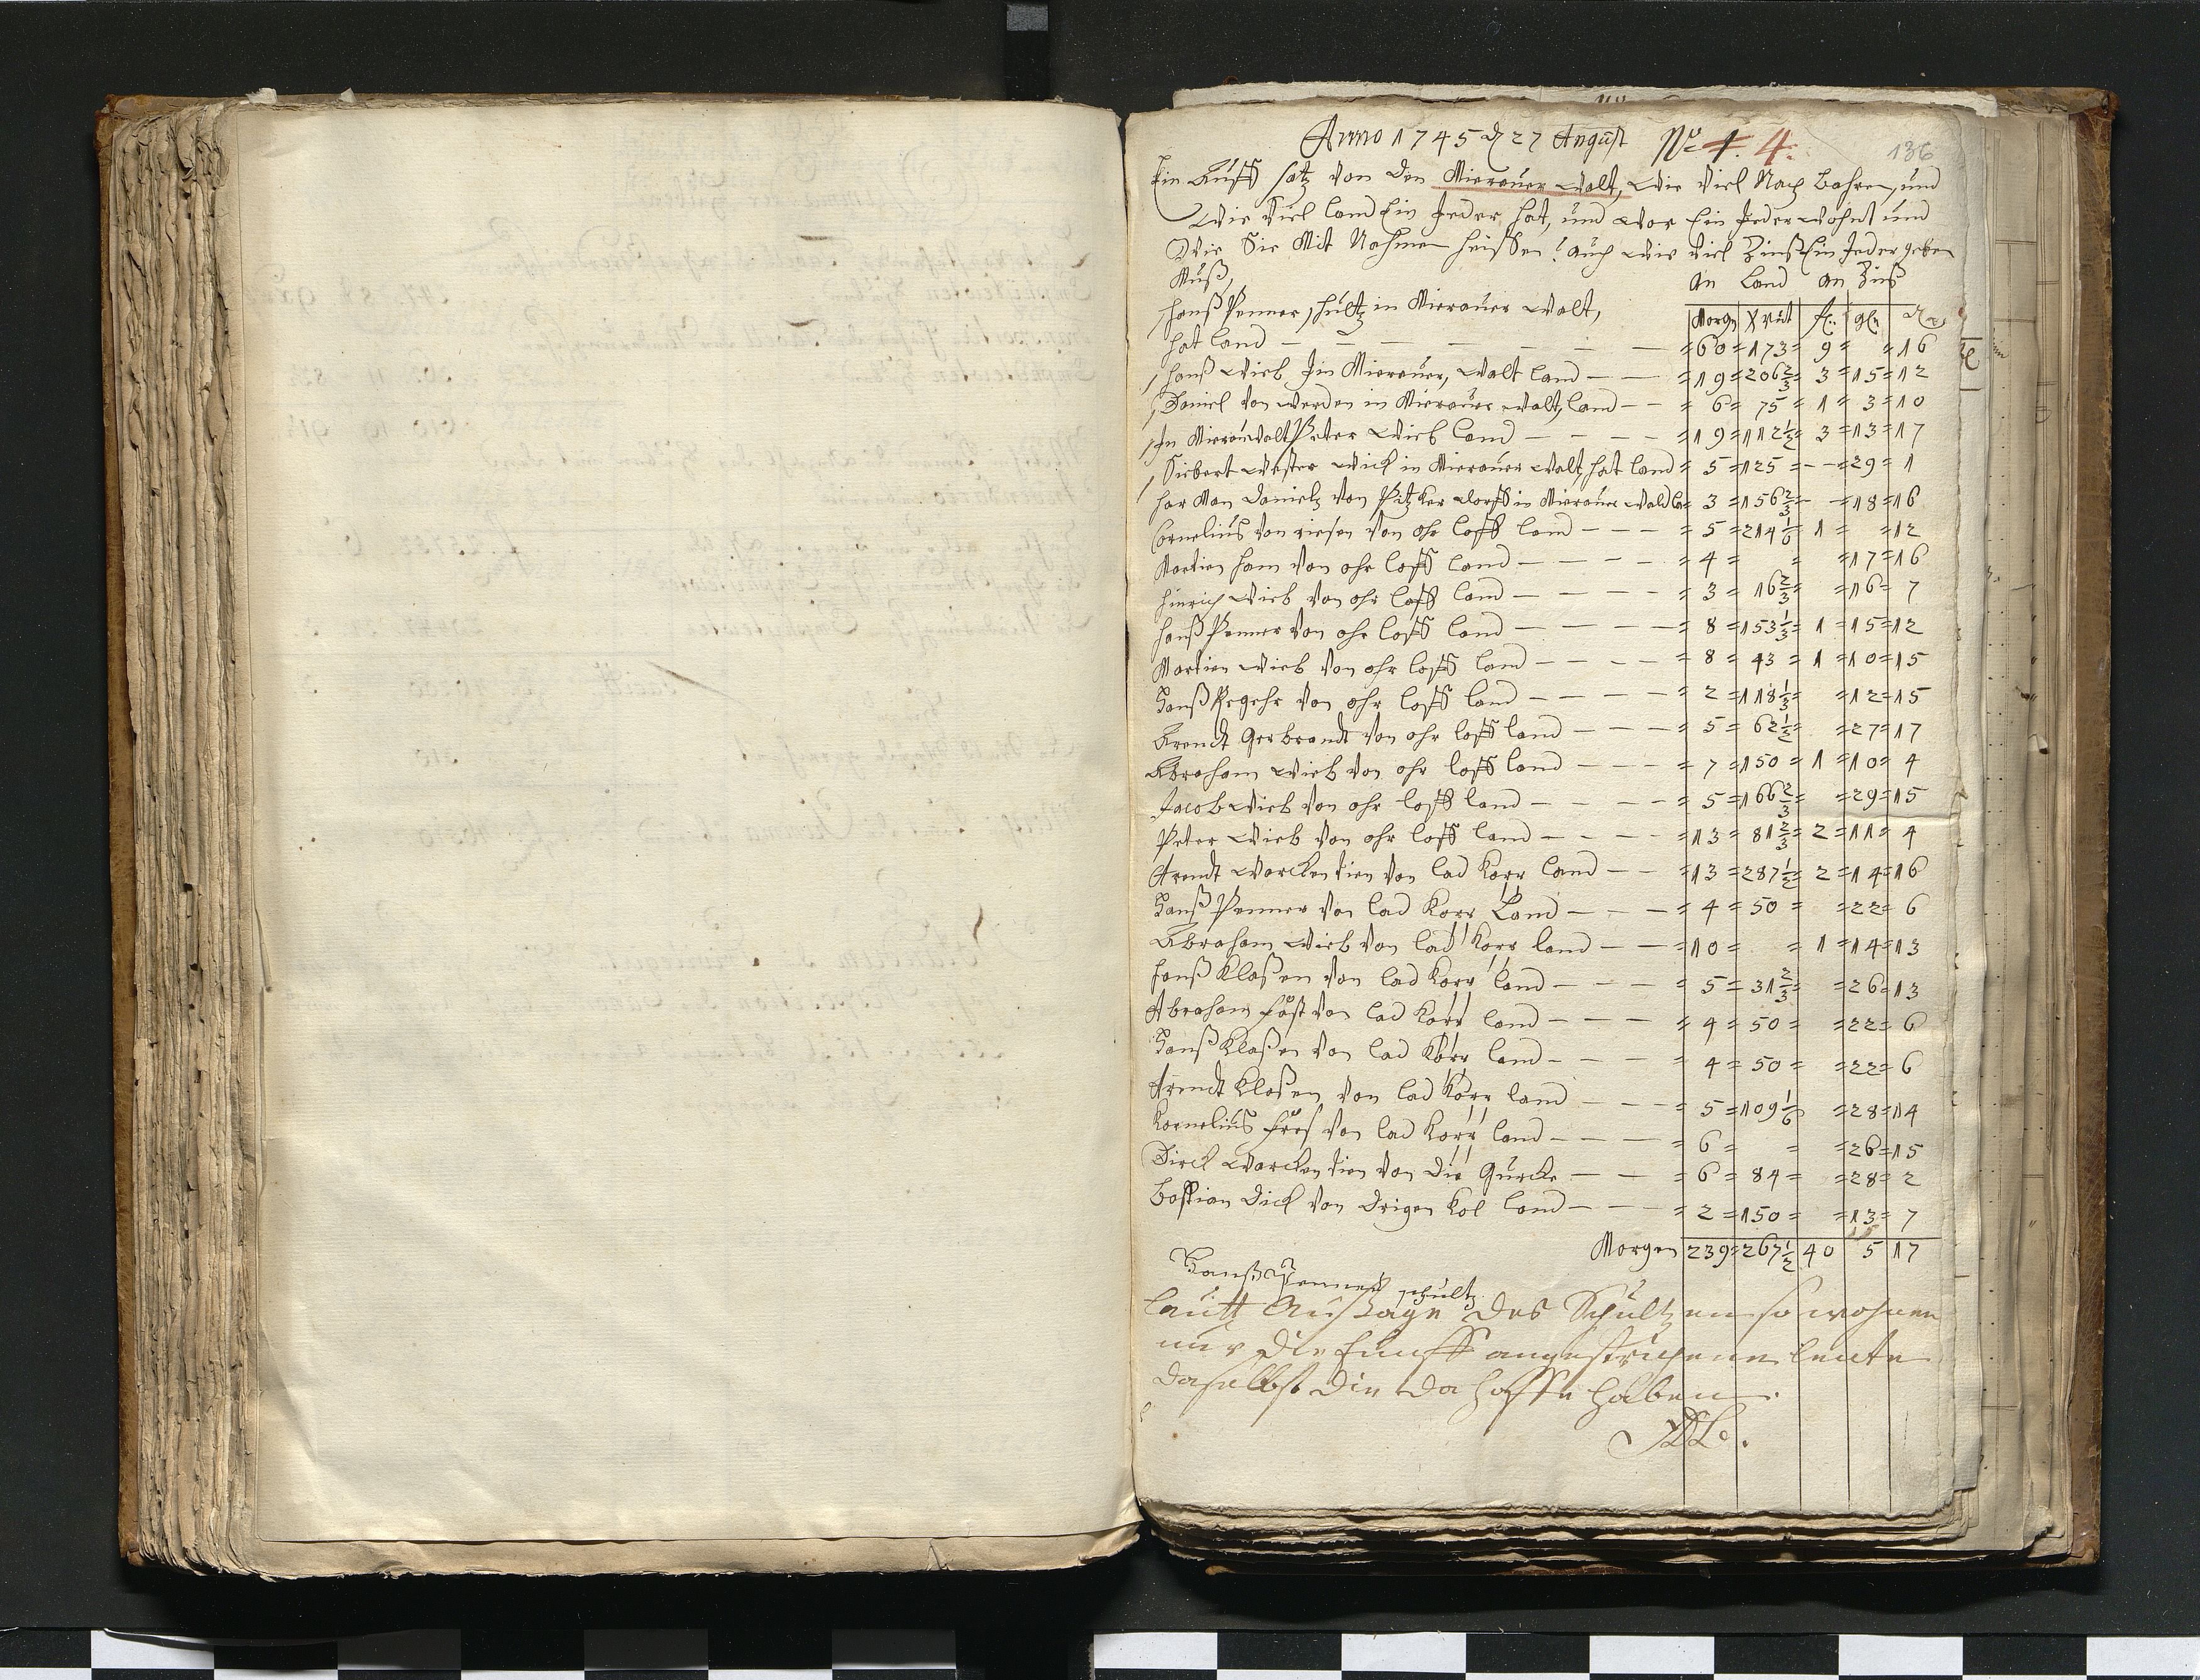 Anno 1745 d 27 August No 4. 4.
136
Ein Auffsatz von den Mierauer Walt, Wie Viel Nach bahren, und
Wie Viel land Ein Jeder hat, und wor Ein Jeder wohnt und
Wie Sie Mit Nahmen heissen! auch wie Viel Zinß Ein Jeder geben
Muß,
an Land an Zinß
Hanß Penner Schultz in Mierauer Walt,
Morgn Xrut fl: gl:
hat land — — — — — — — = 60 = 173 = 9 = = 16
Hanß Wieb Jn Mierauer, Walt land — — = 19 = 206 2/3 = 3 = 15 = 12
Daniel von werden in Mierauer walt, land — — = 6 = 75 = 1 = 3 = 10
Jn Mierauwalt Peter Wieb land — — — — = 19 = 112 1/2 = 3 = 13 = 17
Siebert wester Wick in Mierauer Walt, hat land = 5 = 125 = — = 29 = 1
Har Man Danielz von Pitzker dorff in Mierauer Wald la = 3 = 156 2/3 = — = 18 = 16
Cornelius von riesen von ohr loff land — — — = 5 = 214 1/6 = 1 = = 12
Martien ham von ohr loff land — — — — = 4 = = = 17 = 16
Hinrich Wieb von ohr loff land — — — — = 3 = 16 2/3 = = 16 = 7
Hanß Penner von ohr loff land — — — — = 8 = 153 1/3 = 1 = 15 = 12
Martien Wieb von ohr loff land — — — — = 8 = 43 = 1 = 10 = 15
Hanß Regehr von ohr loff land — — — — = 2 = 118 1/3 = = 12 = 15
Arendt Gerbrandt von ohr loff land — — — = 5 = 62 1/2 = = 27 = 17
Abraham Wieb von ohr loff land — — — = 7 = 150 = 1 = 10 = 4
Jacob Wieb von ohr loff land — — — — = 5 = 166 2/3 = = 29 = 15
Peter Wieb von ohr loff land — — — — = 13 = 81 2/3 = 2 = 11 = 4
Arendt Warckentien von lad Korr land — — = 13 = 287 1/2 = 2 = 14 = 16
Hanß Penner von lad Korr Land — — — = 4 = 50 = = 22 = 6
Abraham Wieb von lad Korr land — — = 10 = = 1 = 14 = 13
Hanß Klaßen von lad Korr land — — — = 5 = 31 2/3 = = 26 = 13
Abraham Fast von lad Korr land — — — = 4 = 50 = = 22 = 6
Hanß Klaßen von lad Korr land — — — = 4 = 50 = = 22 = 6
Arendt Klaßen von lad Korr land — — — = 5 = 109 1/6 = 28 = 14
Kornelius Fres von lad Korr land — — — = 6 = = = 26 = 15
Dirck Warckentien von Die Gurcke — — = 6 = 84 = = 28 = 2
Bastian Dick von Drigen Kol land — — — = 2 = 150 = = 13 = 7
Morgen 239 = 267 1/2 40 5 17
Hanß Penner Schultz
lautt Aussage des Schultzen so wohnen
nur die funff angestrichene leute
daselbst die da Höffe haben.